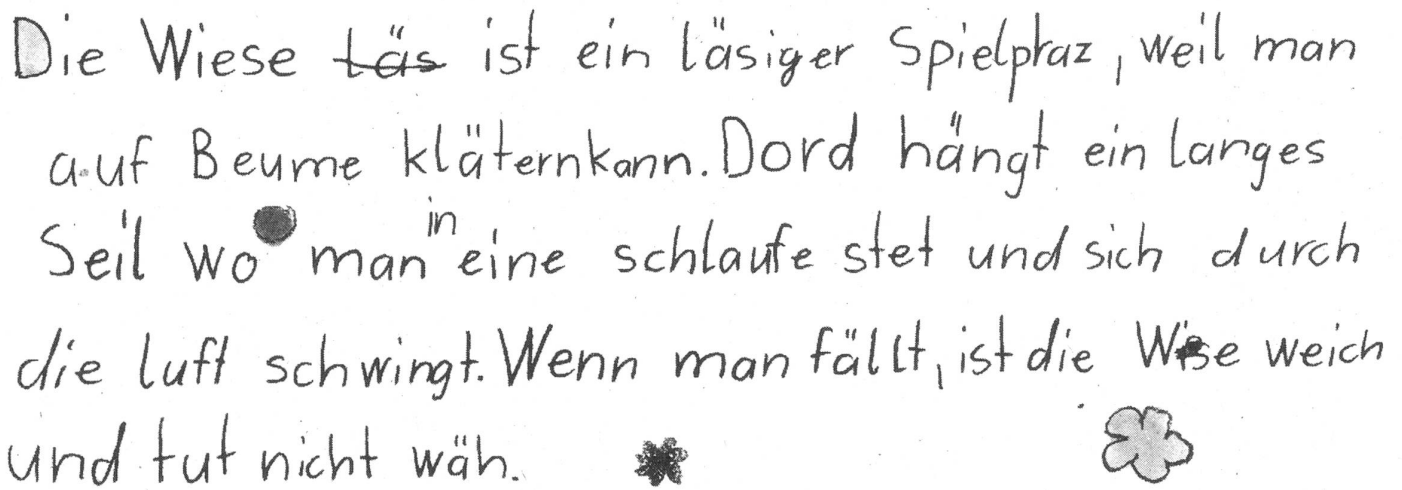 Die Wiese ~~Läs~~ ist ein läsiger Spielplaz, weil man
auf Beume kläternkann. Dord hängt ein langes
Seil wo man in eine schlaufe stet und sich durch
die luft schwingt. Wenn man fällt, ist die Wise weich
und tut nicht wäh.